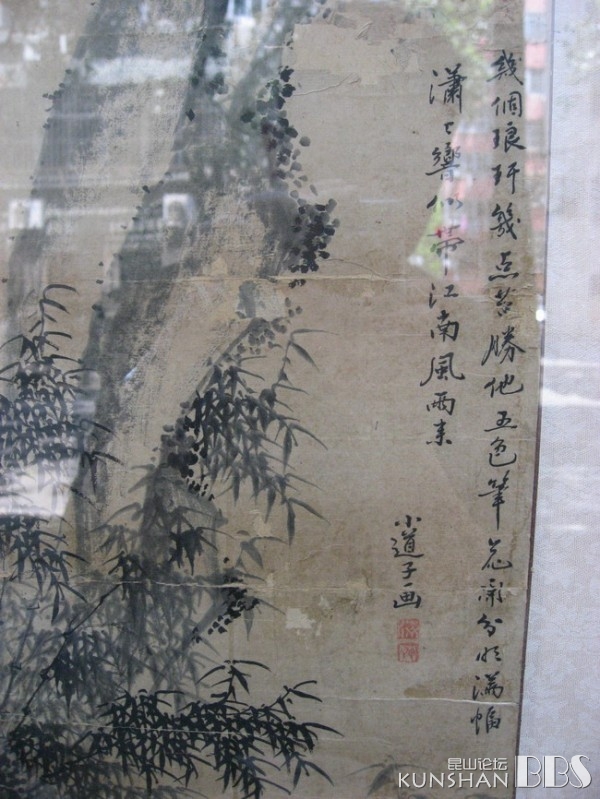 幾個琅玕幾点苔勝他五色筆花開分明滿幅
瀟〻響似帶江南風雨来
小道子画
昆山论坛
KUNSHAN BBS